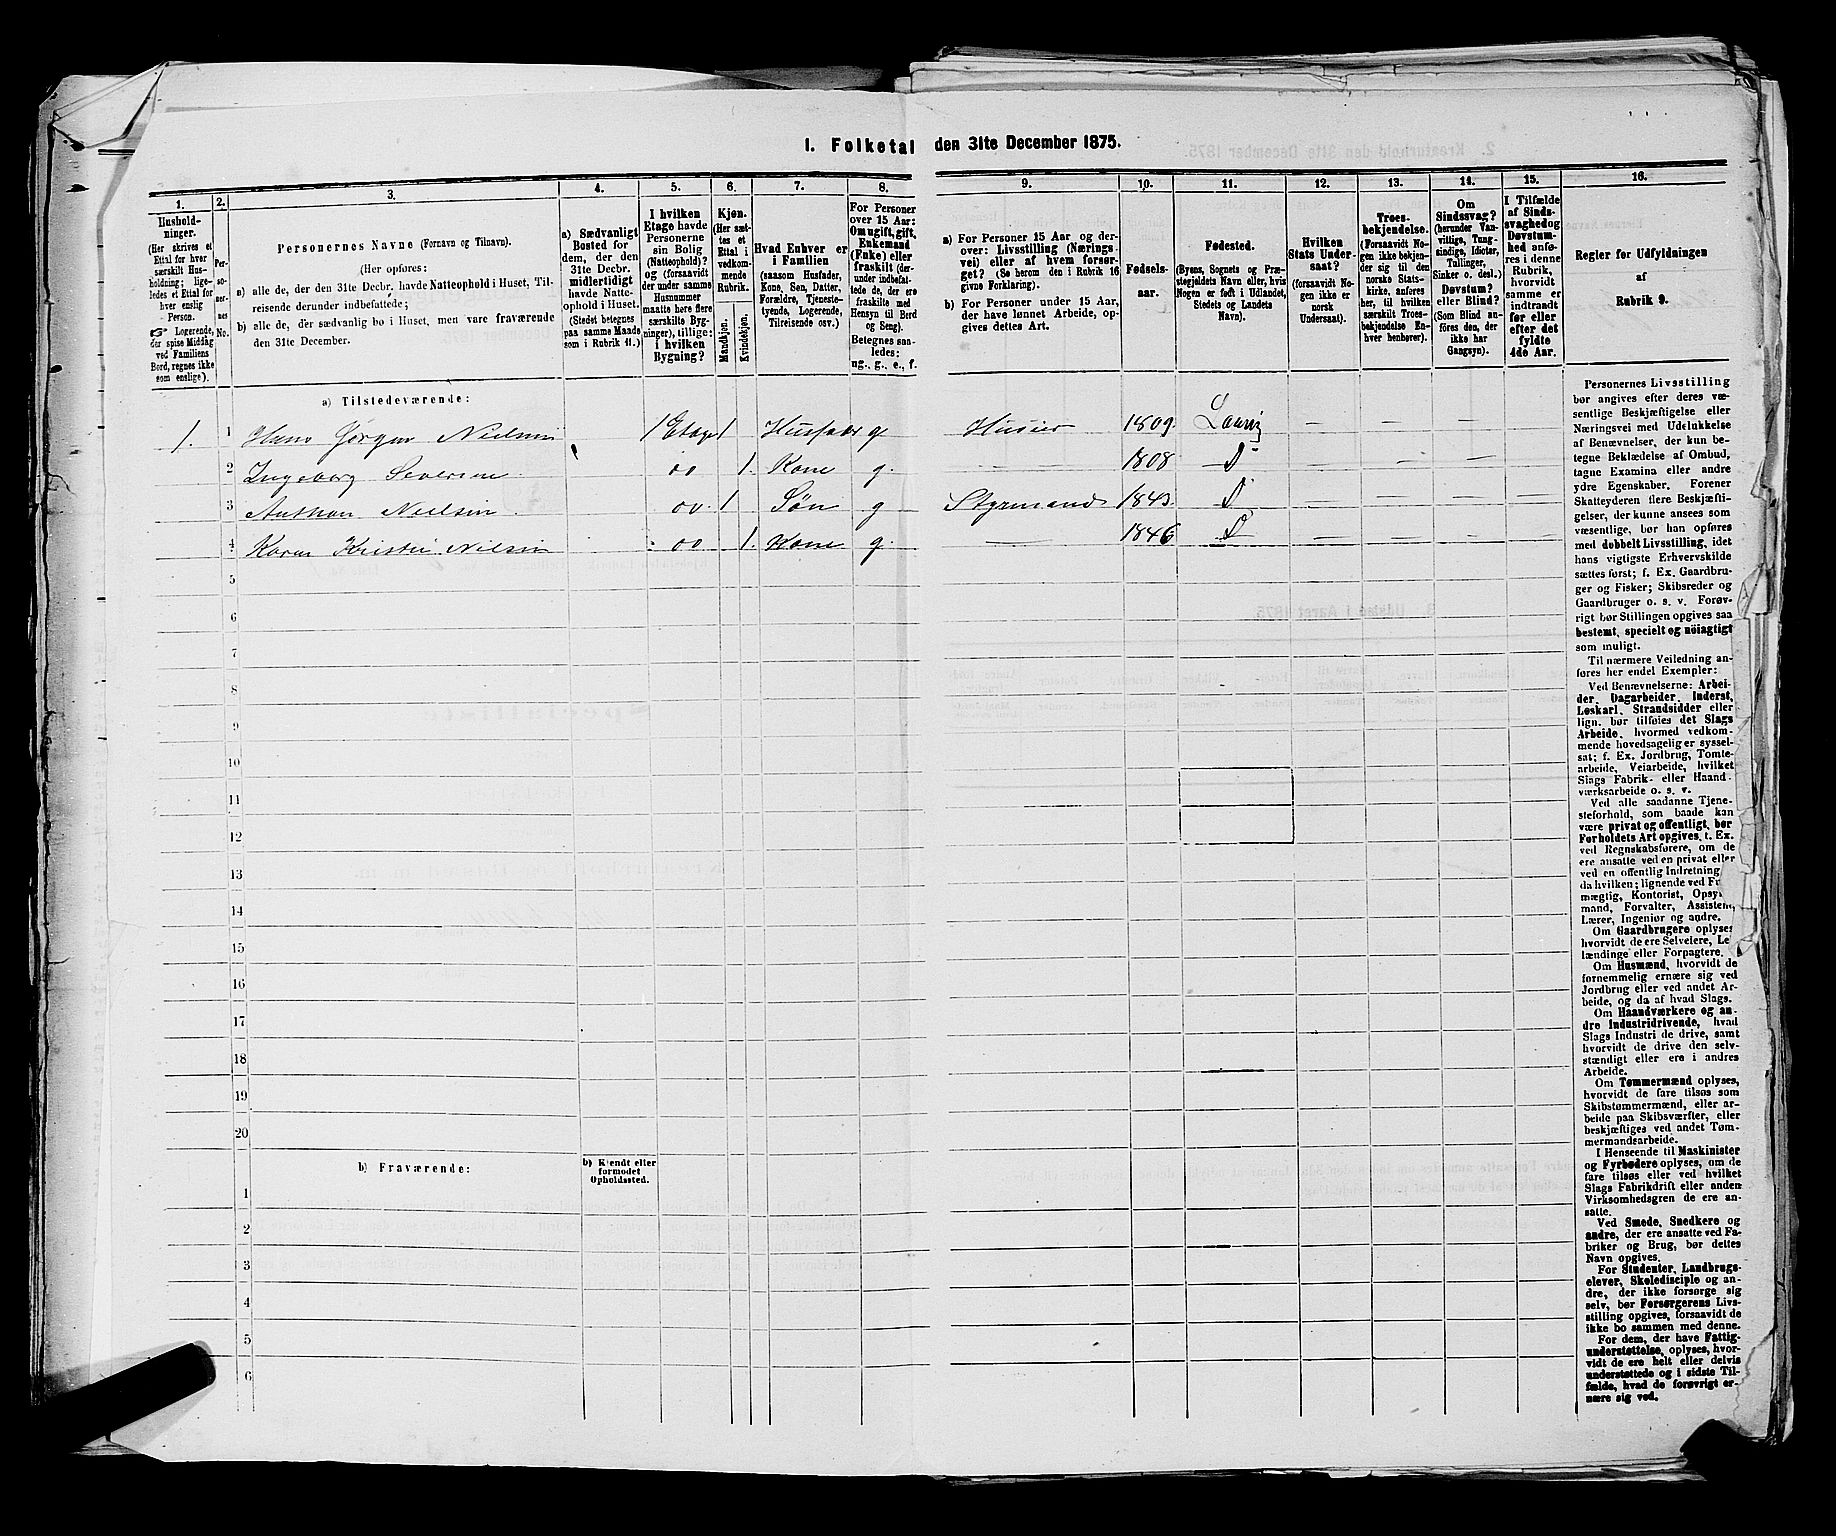 I. Folketal den 31te December 1875.
1. 2. 3. 4. 5. 6. 7. 8. 9. 10. 11. 12. 13. 14. 15. 16.
Hushold-
ninger.
(Her skrives et
Ettal for hver
særskilt Hus-
holdning; lige-
ledes et Ettal for
hver enslig
Person.
☞ Logerende,
der spise Middag
ved Familiens
Bord, regnes ikke
som enslige).
Per-
so-
ner-
nes
No.
Personernes Navne (Fornavn og Tilnavn).
(Her opføres:
a) alle de, der den 31te Decbr. havde Natteophold i Huset, Til-
reisende derunder indbefattede;
b) alle de, der sædvanlig bo i Huset, men vare fraværende
den 31te December.
a) Sædvanligt
Bosted for
dem, der den
31te Decbr.
midlertidigt
havde Natte-
ophold i Huset.
(Stedet betegnes
paa samme Maade
som i Rubrik 11.)
I hvilken
Etage havde
Personerne
sin Bolig
(Natteophold)?
og (forsaavidt
der under samme
Husnummer
maatte høre flere
særskilte Byg-
ninger), tillige:
i hvilken
Bygning?
Kjøn.
(Her sæt-
tes et
Ettal i
vedkom-
mende
Rubrik.
Mandkjøn.
Kvindekjøn.
Hvad Enhver er
i Familien
(saasom Husfader,
Kone, Søn, Datter,
Forældre, Tjeneste-
tyende, Logerende,
Tilreisende osv.)
For Personer
over 15 Aar:
Om ugift, gift,
Enkemand
(Enke) eller
fraskilt (der-
under indbefat-
tede de, der ere
fraskilte med
Hensyn til Bord
og Seng).
Betegnes saa-
ledes:
ug., g., e., f.
a) For Personer 15 Aar og der-
over: Livsstilling (Nærings-
vei) eller af hvem forsør-
get? (Se herom den i Rubrik 16
givne Forklaring).
b) For Personer under 15 Aar,
der have lønnet Arbeide, op-
gives dettes Art.
Fødsels-
aar.
Fødested.
(Byens, Sognets og Præ-
stegjeldets Navn, eller, hvis
Nogen er født i Udlandet,
Stedets og Landets
Navn).
Hvilken
Stats Under-
saat?
(forsaavidt No-
gen ikke er
norsk
Undersaat).
Troes-
bekjendelse.
(Forsaavidt No-
gen ikke bekjen-
der sig til den
norske Stats-
kirke, anføres
her, til hvilken
særskilt Troes-
bekjendelse En-
hver henhører).
Om
Sindssvag?
(herunder Van-
vittige, Tung-
sindige, Idioter,
Tullinger,
Sinker o. desl.)
Døvstum?
eller Blind?
(Som Blind an-
føres den, der
ikke har
Gangsyn).
I Tilfælde
af Sinds-
svaghed og
Døvstum-
hed anfø-
res i denne
Rubrik,
hvorvidt
samme er
indtraadt
før eller
efter det
fyldte
4de Aar.
Regler for Udfyldningen
af
Rubrik 9.
a) Tilstedeværende:
1. 1 Hans Jørgen Nielsen 1 Etage 1 Husfader g Huseier 1809 Laurvig — — —
2 Ingeborg Seversen oo 1. Kone g. — 1808 D — — —
3 Anthon Nielsen oo. 1 Søn g Styrmand 1843. D — — —
4 Karen Kristie Nielsen oo 1. Kone g. — 1846 D — — —
5
6
7
8
9
10
11
12
13
14
15
16
17
18
19
20
b) Fraværende:
b) Kjendt eller
formodet
Opholdssted.
1
2
3
4
5
6
Personernes Livsstilling
bør angives efter deres væ-
sentlige Beskjæftigelse eller
Næringsvei med Udelukkelse
af Benævnelser, der kun be-
tegne Beklædelse af Ombud,
tagne Examina eller andre
ydre Egenskaber. Forener
Skatteyderen flere Beskjæfti-
gelser, der kunne ansees som
væsentlige, bør han opføres
med dobbelt Livsstilling, idet
hans vigtigste Erhvervskilde
sættes først; f. Ex. Gaardbru-
ger og Fisker; Skibsreder og
Gaardbruger o. s. v. Forøv-
rigt bør Stillingen opgives saa
bestemt, specielt og nøiagtigt
som muligt.
Til nærmere Veiledning an-
føres her endel Exempler:
Ved Benævnelserne: Arbei-
der, Dagarbeider, Inderst,
Løskarl, Strandsidder eller
lign. bør tilføies det Slags
Arbeide, hvormed vedkom-
mende hovedsagelig er syssel-
sat; f. Ex. Jordbrug, Tomte-
arbeide, Veiarbeide, hvilket
Slags Fabrik- eller Haand-
værksarbeide o. s. v.
Ved alle saadanne Tjene-
steforhold, som baade kan
være privat og offentligt, bør
Forholdets Art opgives, t. Ex.
ved Regnskabsførere, om de
ere ansatte ved en privat eller
ved en offentlig Indretning,
da hvilken; lignende ved Fu
mægtig, Kontorist, Opsyns-
mand, Forvalter, Assistent,
Lærer, Ingeniør og andre.
Om Gaardbrugere oplyses
hvorvidt de ere Selveiere, Lei-
lændinge eller Forpagtere.
Om Husmænd, hvorvidt de
fornemmelig ernære sig ved
Jordbrug eller ved andet Ar-
beide, og da af hvad Slags.
Om Haandværkere og an-
dre Industridrivende, hvad
Slags Industri de drive, samt
hvorvidt de drive den selv-
stændigt eller ere i andres
Arbeide.
Om Tømmermænd oplyses,
hvorvidt de fare tilsøs som
Skibstømmermænd, eller ar-
beide paa Skibsværfter, eller
beskjæftiges ved andet Tøm-
mermandsarbeide.
I Henseende til Maskinister
og Fyrbødere oplyses, om de
fare tilsøs eller ved hvilket
Slags Fabrikdrift eller anden
Virksomhedsgren de ere an-
satte.
Ved Smede, Snedkere og
andre, der ere ansatte ved Fa-
briker og Brug, bør dettes
Navn opgives.
For Studenter, Landbrugs-
elever, Skoledisciple og an-
dre, der ikke forsørge sig
selv, bør Forsørgerens Livs-
stilling opgives, forsaavidt de
ikke bo sammen med denne.
For dem, der have Fattig-
understøttelse, oplyses, hvor-
vidt de ere helt eller delvis
understøttede og i sidste Til-
fælde, hvad de forøvrigt er-
nære sig ved.